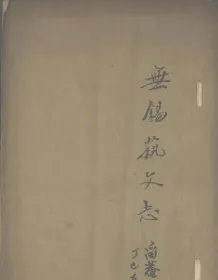 無錫藝文志